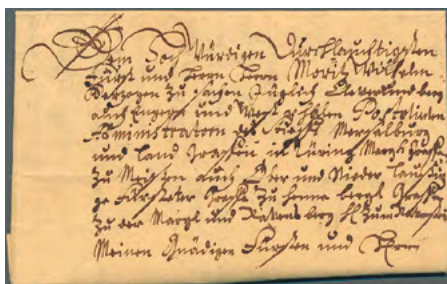 Dem Hoch Würdigen Durchlauchtigsten
Fürst und Herrn Herrn Moritz Wilhelm
Herzogen zu Sachsen Jülich Cleve und Berg
auch Engern und Westphalen Postulirten
Administratorn des Stiffts Merseburg
und Land Graffen in Düring Marg Graffen
zu Meissen auch Ober und Nieder Lausitz
Fürsteter Graffe zu Henneberg Graffen
zu der Marck und Ravensberg H zum Ravenstein
Meinen Gnädigen Fürsten und Herrn